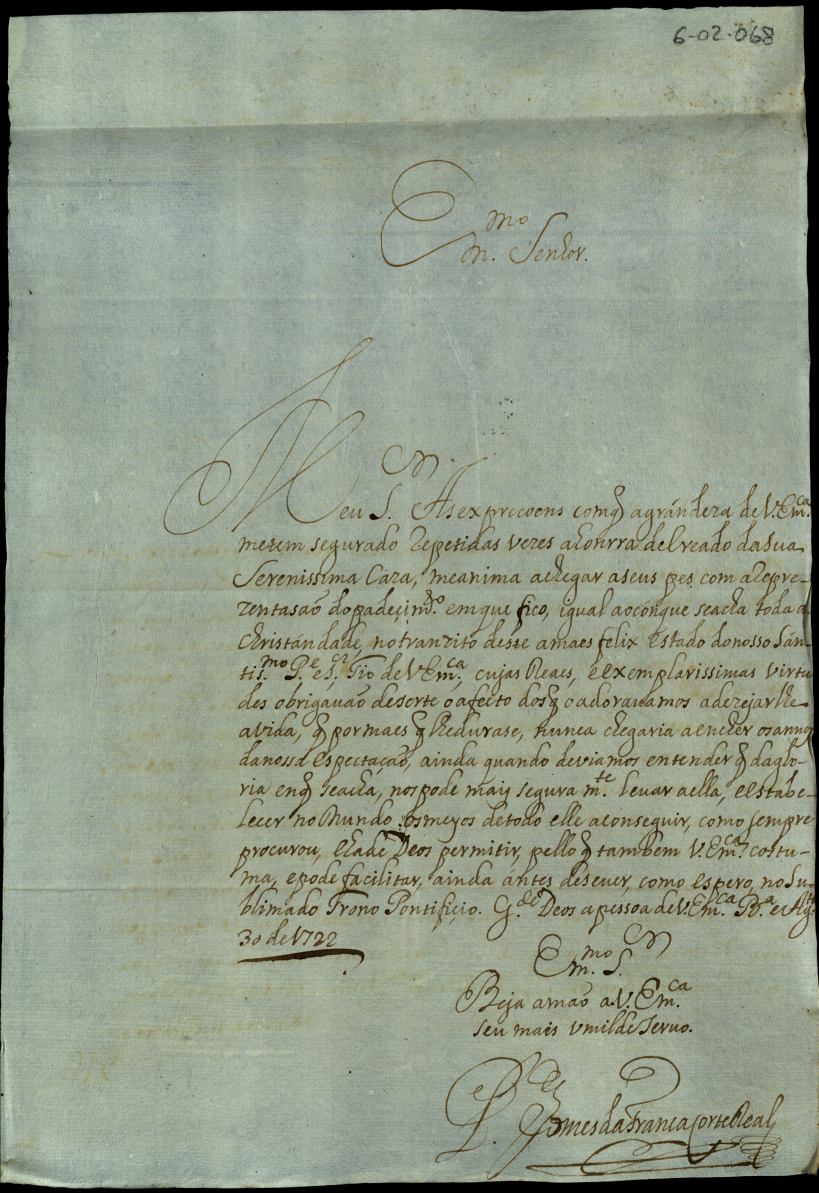 6-02-068
Em.mo Senhor.
Meu S.or As exprecoens com q̃ a grándeza de V. Em.ca
me tem segurado repetidas vezes a honrra del reado da Sua
Serenissima Caza, me anima a chegar a seus pes com a repre-
zentasaõ do padecim.to em que fico, igual ao có que se acha toda a
Christándade, no tranzito desse a maes felix estado do nosso Sán-
tis.mo P.e e S.or Tio de V Em.ca, cujas Reaes, e exemplarissimas virtu
des obrigáuaõ de sorte o afecto dos q̃ o adorauamos a dezejarlhe
a vida, q̃ por maes q̃ lhe durase, nunca chegaria a encher os annos
da nossa espectaçaõ, ainda quando deviamos entender q̃ da glo-
ria en q̃ se acha, nos pode mais segura m.te leuar a ella, e estabe-
lecer no Mundo os meyos de todo elle a conseguir, como sempre
procurou, e ha de Deos permitir, pello q̃ tambem V. Em.ca costu-
ma, e pode facilitar, ainda ántes de se uer, como espero, no Su-
blimado Trono Pontificio. G.de Deos a pessoa de V. Em.ca B.a e Ag.to
30 de 1722
Em.mo S.or
Beja a maõ a V. Em.ca
seu mais vmilde Seruo.
Gomes da Franca Corte Real